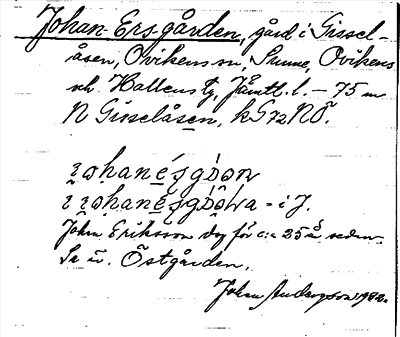 Johan-Ers-gården, gård i Gissel-
åsen, Ovikens sn, Sunne, Ovikens
och Hallens tg, Jämtl. l. – 75 m
N Gisselåsen, kG72NÖ.
johanésgɒ́ɒn
i johanésgɒ̂ɒła - i J.
John Eriksson dog för c:a 25 å. sedan.
Se äv. Östgården.
Johan Andersson 1982.